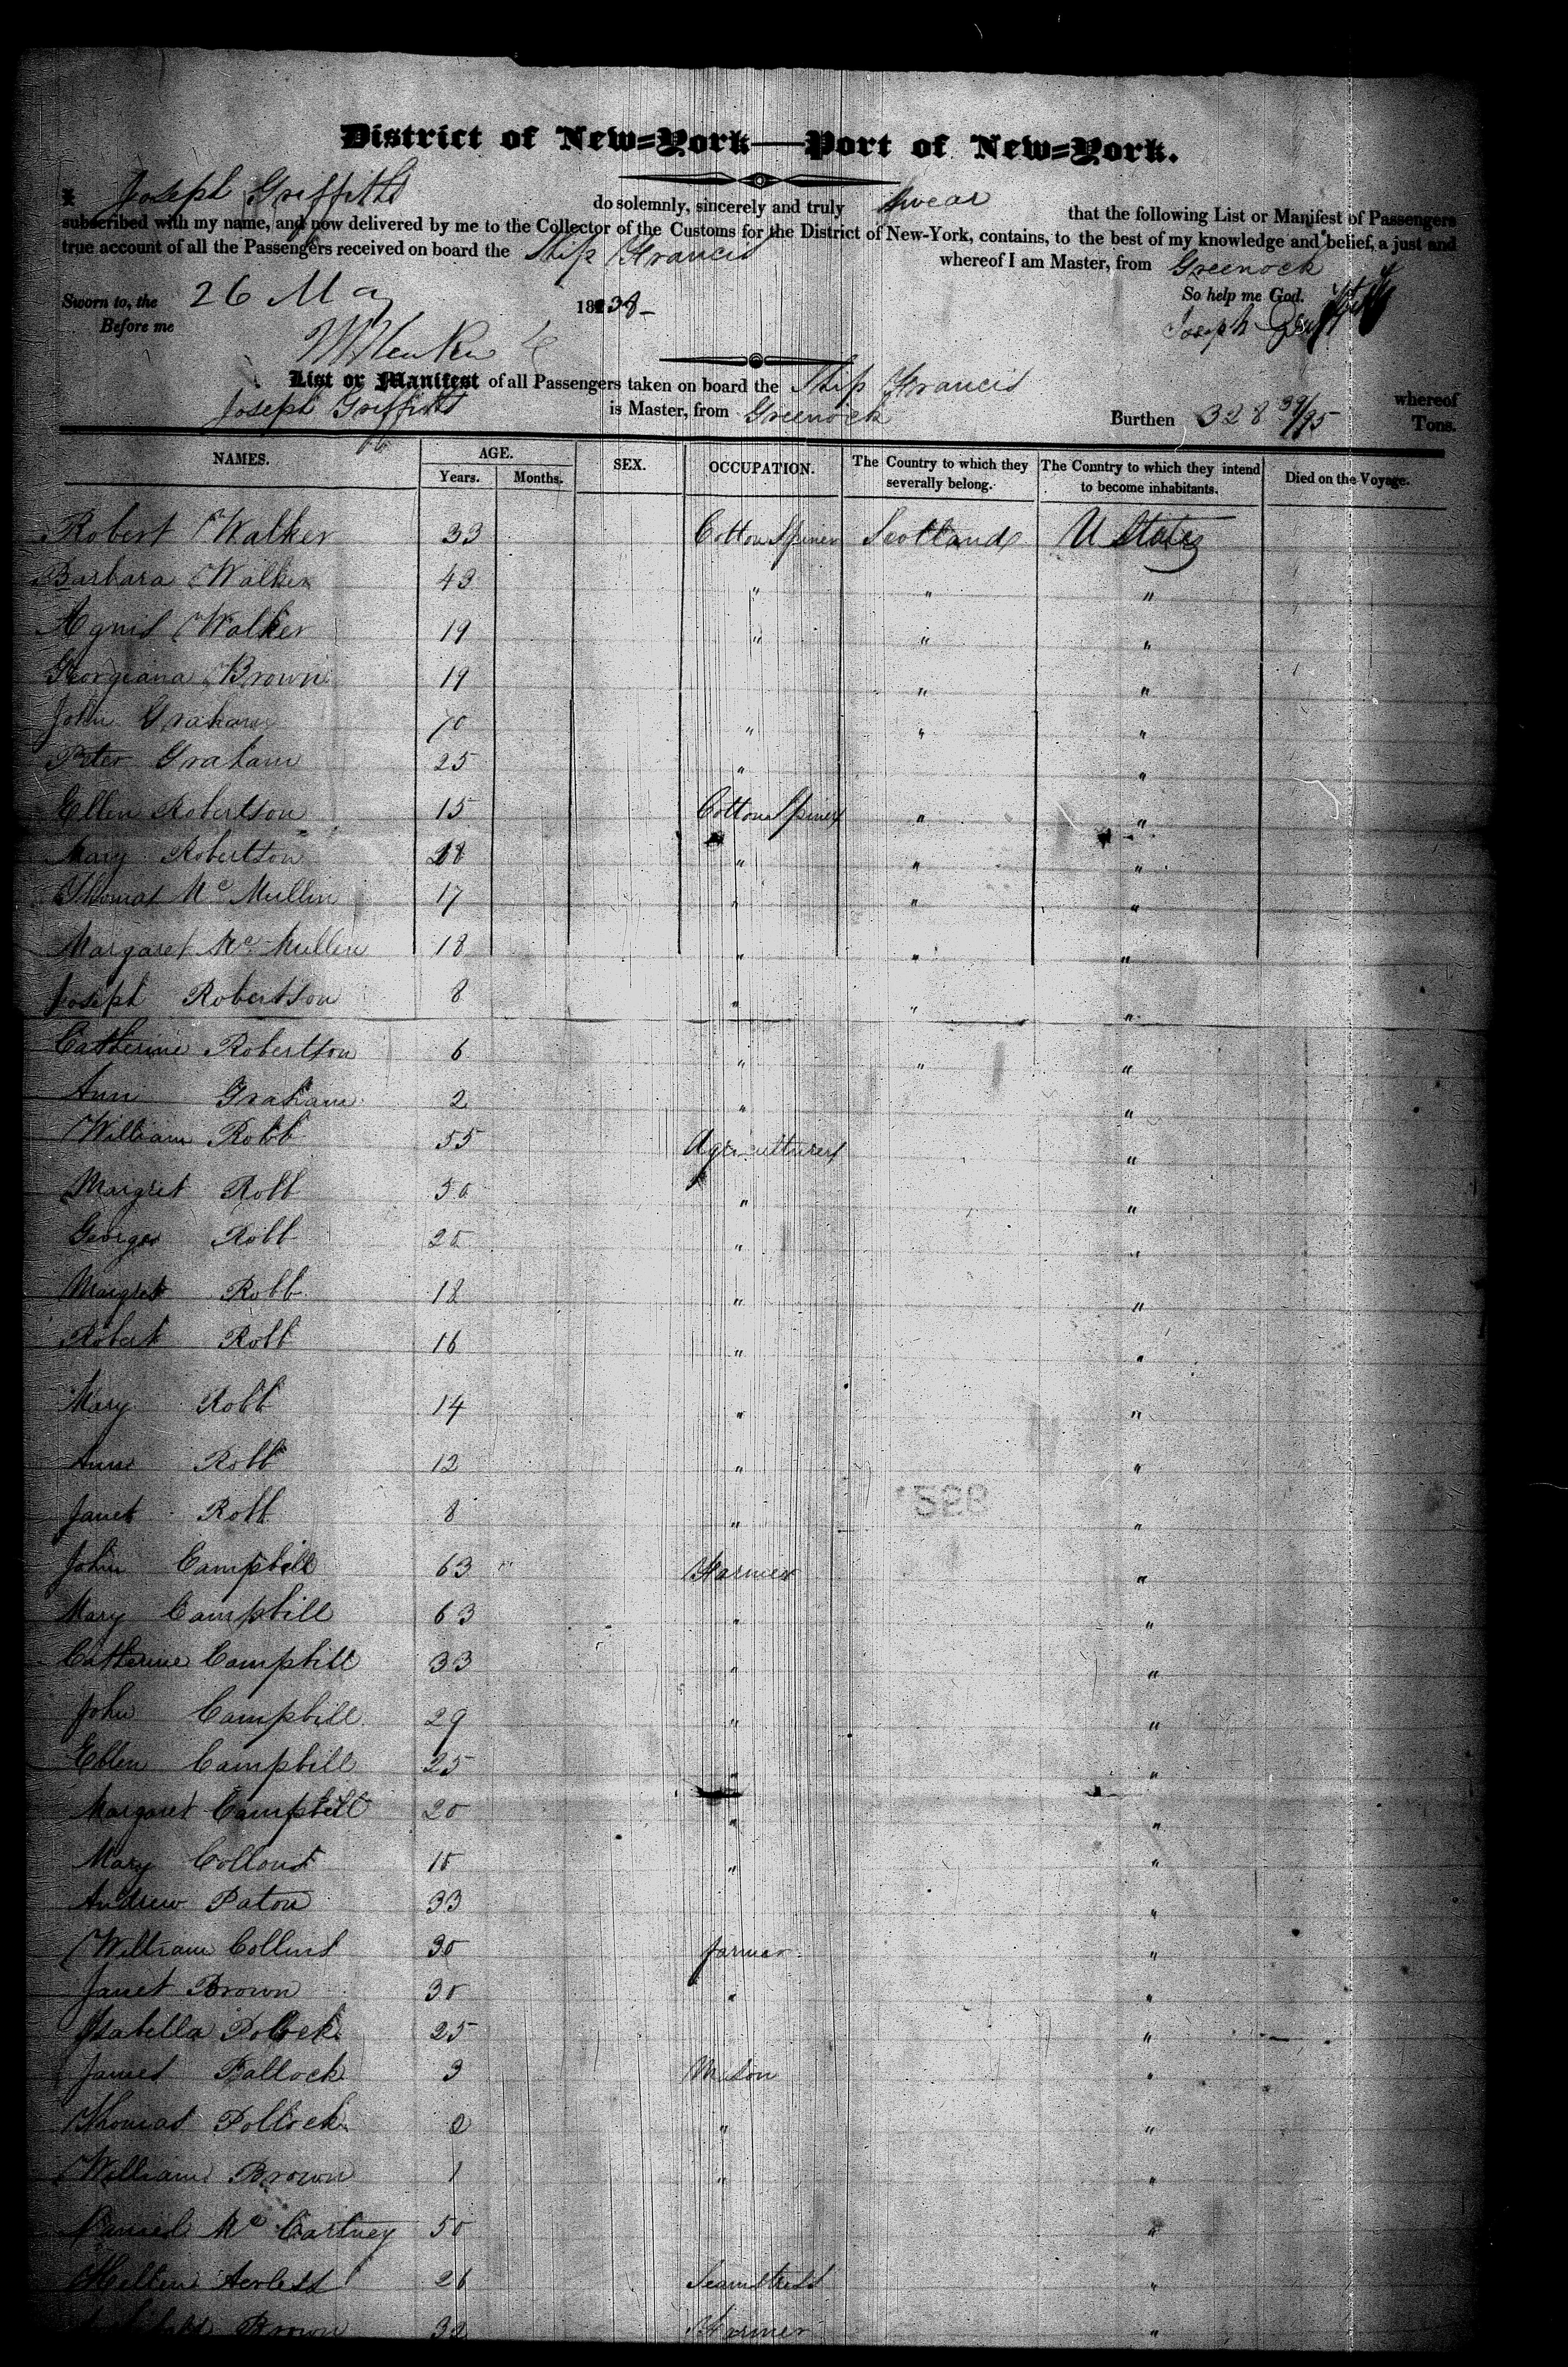 District of New=York—Port of New=York.
I Joseph Griffiths do solemnly, sincerely and truly Swear that the following List or Manifest of Passengers
subscribed with my name, and now delivered by me to the Collector of the Customs for the District of New-York, contains, to the best of my knowledge and belief, a just and
true account of all the Passengers received on board the Ship Francis whereof I am Master, from Greenock
Sworn to, the 26 May 1838- So help me God.
Before me Joseph Griffiths
List or Manifest of all Passengers taken on board the Ship Francis whereof
Joseph Griffiths is Master, from Greenock Burthen 328 39/95 Tons.
NAMES. AGE. SEX. OCCUPATION. The Country to which they severally belong. The Country to which they intend to become inhabitants. Died on the Voyage.
Years. Months.
Robert Walker 33 Cotton Spiner Scotland U States
Barbara Walker 43 " " "
Agnis Walker 19 " " "
Georgeana Brown 19 " "
John Graham 10 " " "
Peter Graham 25 " "
Ellen Robertson 15 Cotton Spiner " "
Mary Robertson 18 " " "
Thomas Mc Mullin 17 " " "
Margaret Mc Mullen 18 " " "
Joseph Robertson 8 " " "
Catherine Robertson 6 " " "
Ann Graham 2 " "
William Robb 55 Agriculturer "
Margret Robb 50 " "
George Robb 20 " "
Margret Robb 18 " "
Robert Robb 16 " "
Mary Robb 14 " "
Ann Robb 12 " "
Janet Robb 8 " "
John Campbell 63 Farmer "
Mary Campbill 63 " "
Catherine Campbill 33 " "
John Campbill 29 " "
Ellen Campbill 25 " "
Margaret Campbell 20 " "
Mary 10 " "
Andrew Paton 33 "
William Collins 30 farmer "
Janet Brown 30 " "
Isabella Polock 25 "
James Pallock 3 Mason "
Thomas Pollock 2 " "
William Brown 1 " "
Daniel Mc Cartney 50 "
Hellen 26 Seamstress "
Brown 32 Farmer "